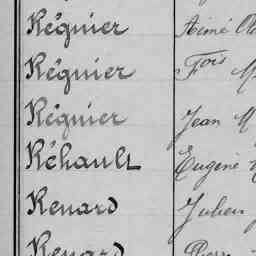 Réguier Aimé
Réguier Fois M
Réguier Jean M
Réhault Eugène
Renard Julien
Renard Pierre